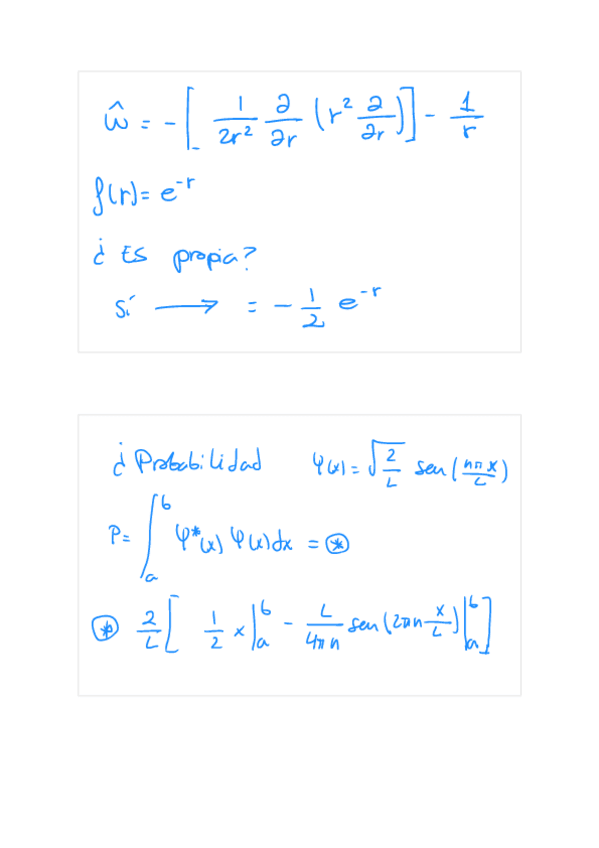 ŵ = -[ 1/2r² ∂/∂r (r² ∂/∂r)] - 1/r
f(r) = e^-r
¿ Es propia?
Sí ⟶ = - 1/2 e^-r
¿ Probabilidad φ(x) = √(2/L) sen (nπx/L)
P = ∫_a^b φ*(x) φ(x) dx = ⊛
⊛ 2/L [ 1/2 x |_a^b - L/4πn sen (2πn x/L) |_a^b ]